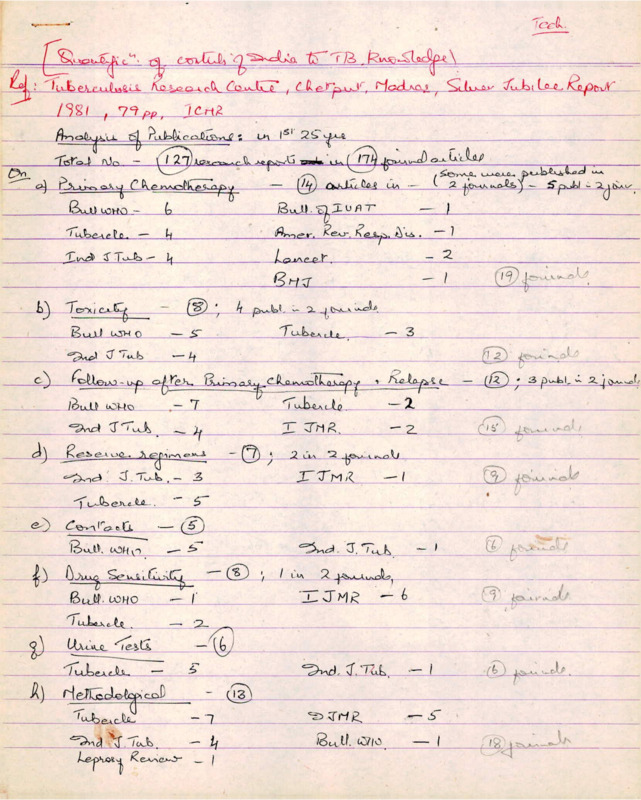 Tech.
[Quantific" of contribn of India to TB Knowledge]
Ref: Tuberculosis Research Centre, Chetput, Madras, Silver Jubilee Report
1981, 79 pp, ICMR
Analysis of Publications: in 1st 25 yrs
Total No - 127 research reports in 174 journal articles
On
(some were published in
a) Primary Chemotherapy - 14 articles in - 2 journals) - 5 publ - 2 jour.
Bull WHO - 6 Bull. of IUAT - 1
Tubercle - 4 Amer. Rev. Resp. Dis. - 1
Ind J Tub - 4 Lancet - 2
BMJ - 1 19 journals
b) Toxicity - 8; 4 publ. in 2 journals
Bull WHO - 5 Tubercle - 3
Ind J Tub - 4 12 journals
c) Follow-up after Primary Chemotherapy + Relapse - 12; 3 publ. in 2 journals
Bull WHO - 7 Tubercle - 2
Ind J Tub. - 4 IJMR - 2 15 journals
d) Reserve regimens - 7; 2 in 2 journals
Ind. J. Tub. - 3 IJMR - 1 9 journals
Tubercle - 5
e) Contacts - 5
Bull. WHO - 5 Ind. J. Tub. - 1 6 journals
f) Drug Sensitivity - 8; 1 in 2 journals,
Bull. WHO - 1 IJMR - 6 9 journals
Tubercle - 2
g) Urine Tests - 6
Tubercle - 5 Ind. J. Tub. - 1 6 journals.
h) Methodological - 13
Tubercle - 7 IJMR - 5
Ind J. Tub. - 4 Bull. WHO - 1 18 journals
Leprosy Review - 1